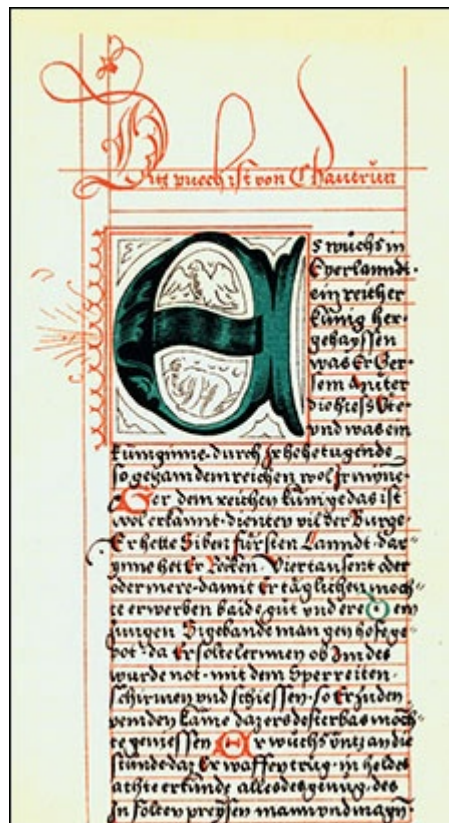 Ditz puech ist von Chautrun
Es wuchs in
Eyerlanndt·
ein reicher
kunig her·
gehayssen
was Er Ger·
sein muter
die hiess Ute
vnd was ein
kuniginne· durch Ir hohe tugende
so gezam dem reichen wol Ir mynne·
Ger dem reichen kunige das ist
wol erkannt· dienten vil der Burge·
Er hette Siben fursten Lanndt· dar
ynne het Er Recken· Viertausent oder
oder mere· damit Er täglichen moch
te erwerben baide gut vnd ere Dem
jungen Sigebande man gen hofe ge
pot· da Er solte lernnen ob Im des
wurde not· mit dem Sper reiten·
schirmen vnd schiessen· so Er zu den
veinden kame daz er dester bas moch
te geniessen Er wuchs vntz an die
stunde daz Er waffen trug· in heldes
achte er kunde alles des genug· des
In solten preysen mann vnd mayn·